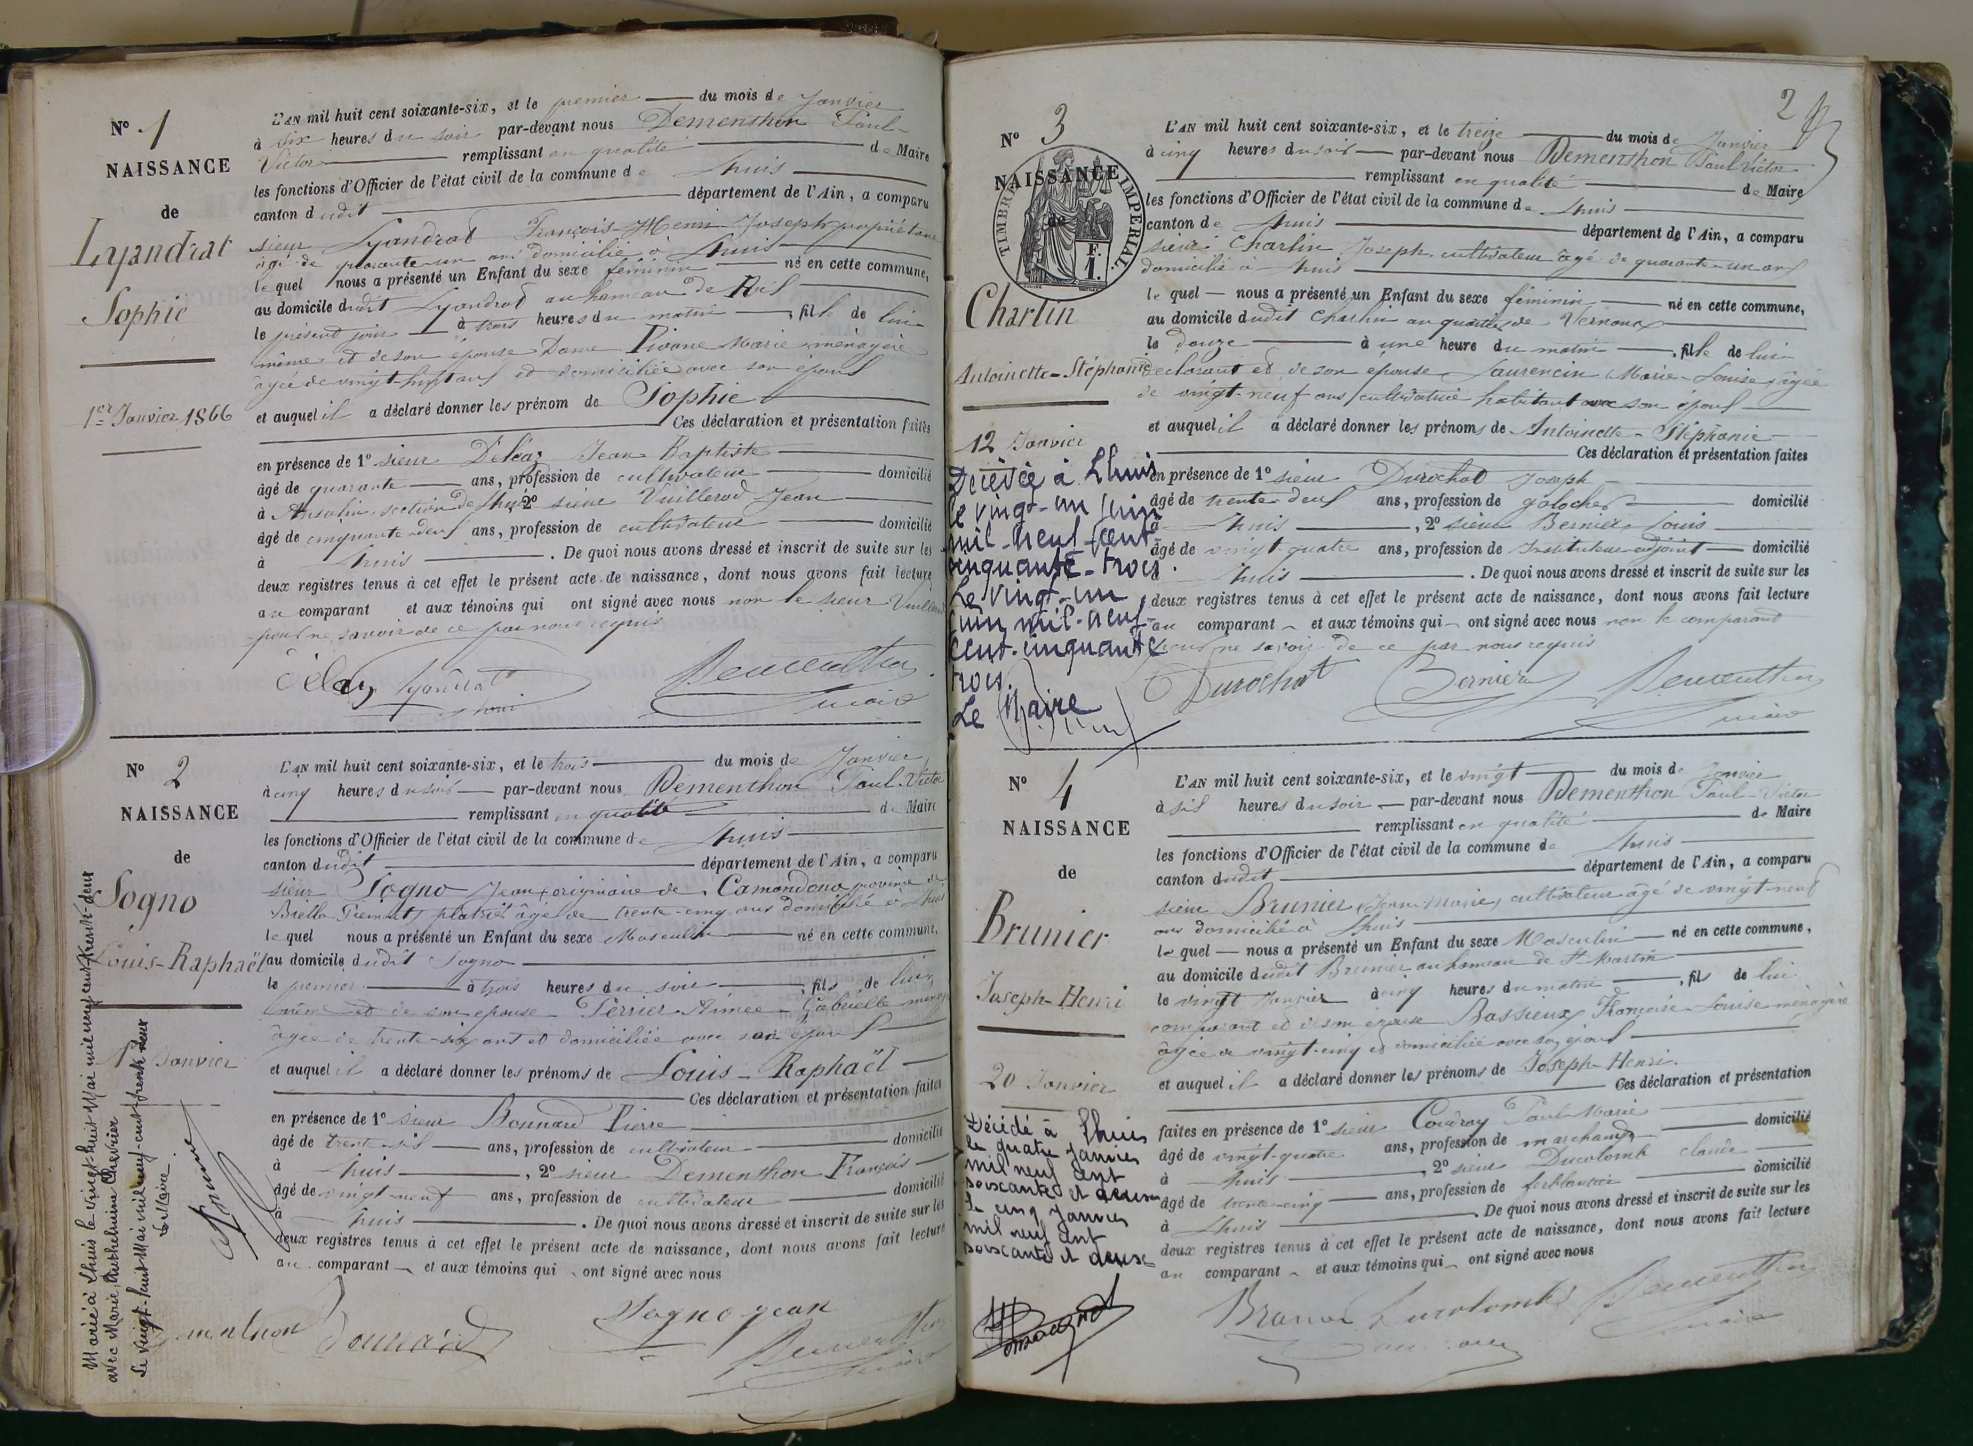 N° 1
NAISSANCE
de
Lyandrat
Sophie
1er Janvier 1866
L'AN mil huit cent soixante-six, et le premier du mois de Janvier
à six heures du soir par-devant nous Dementhon Paul-
Victor remplissant en qualité de Maire
les fonctions d'Officier de l'état civil de la commune de Lhuis
canton dudit département de l'Ain, a comparu
sieur Lyandrat François-Henri Joseph propriétaire
âgé de quarante-un ans domicilié à Lhuis
lequel nous a présenté un Enfant du sexe féminin né en cette commune,
au domicile dudit Lyandrat au hameau de
le présent jour à trois heures du matin, fille de lui-
même et de son épouse Dame Pivone Marie ménagère
âgée de vingt-huit ans et domiciliée avec son époux
et auquel il a déclaré donner les prénom de Sophie
Ces déclaration et présentation faites
en présence de 1° sieur Déléaz Jean Baptiste
âgé de quarante ans, profession de cultivateur domicilié
à Ansolin section de Lhuis 2° sieur Vuillerod Jean
âgé de cinquante-deux ans, profession de cultivateur domicilié
à Lhuis. De quoi nous avons dressé et inscrit de suite sur les
deux registres tenus à cet effet le présent acte de naissance, dont nous avons fait lecture
au comparant et aux témoins qui ont signé avec nous non le sieur Vuillerod
pour ne savoir de ce par nous requis
Lyandrat
Dementhon
maire
N° 2
NAISSANCE
de
Sogno
Louis-Raphaël
1er Janvier
Marié à Lhuis le vingt-huit Mai mil neuf cent trente-deux
avec Marie, Chevrier
Le vingt-huit Mai mil neuf-cent trente deux
Le Maire.
L'AN mil huit cent soixante-six, et le trois du mois de Janvier
à cinq heures du soir par-devant nous Dementhon Paul Victor
remplissant en qualité de Maire
les fonctions d'Officier de l'état civil de la commune de Lhuis
canton dudit département de l'Ain, a comparu
sieur Sogno Jean, originaire de Camandona province de
Biella Piémont, platrier âgé de trente-cinq ans domicilié à Lhuis
lequel nous a présenté un Enfant du sexe Masculin né en cette commune,
au domicile dudit Sogno
le premier à trois heures du soir, fils de lui-
même et de son épouse Perrier Aimée-Gabrielle
âgée de trente-six ans et domiciliée avec son époux
et auquel il a déclaré donner les prénoms de Louis-Raphaël
Ces déclaration et présentation faites
en présence de 1° sieur Bonnard Pierre
âgé de trente-six ans, profession de cultivateur domicilié
à Lhuis, 2° sieur Dementhon François
âgé de vingt-neuf ans, profession de cultivateur domicilié
à Lhuis. De quoi nous avons dressé et inscrit de suite sur les
deux registres tenus à cet effet le présent acte de naissance, dont nous avons fait lecture
au comparant et aux témoins qui ont signé avec nous
Sogno jean
Bonnard
Dementhon
maire
2
N° 3
NAISSANCE
de
TIMBRE IMPERIAL.
F.
1.
Charlin
Antoinette-Stéphanie
12 Janvier
Décédée à Lhuis
le vingt-un juin
mil-neuf-cent-
cinquante-trois.
Le vingt-un
juin mil-neuf-
cent-cinquante
trois.
Le Maire
L'AN mil huit cent soixante-six, et le treize du mois de Janvier
à cinq heures du soir par-devant nous Dementhon Paul Victor
remplissant en qualité de Maire
les fonctions d'Officier de l'état civil de la commune de Lhuis
canton de Lhuis département de l'Ain, a comparu
sieur Charlin Joseph, cultivateur âgé de quarante-un ans
domicilié à Lhuis
lequel nous a présenté un Enfant du sexe féminin né en cette commune,
au domicile dudit Charlin au quartier de Vernoux
le douze à une heure du matin, fille de lui
déclarant et de son épouse Laurencin Marie-Louise, âgée
de vingt-neuf ans, cultivatrice habitant avec son époux
et auquel il a déclaré donner les prénoms de Antoinette-Stéphanie
Ces déclaration et présentation faites
en présence de 1° sieur Durochat Joseph
âgé de trente-deux ans, profession de galocher domicilié
à Lhuis, 2° sieur Bernier Louis
âgé de vingt-quatre ans, profession de Instituteur adjoint domicilié
à Lhuis. De quoi nous avons dressé et inscrit de suite sur les
deux registres tenus à cet effet le présent acte de naissance, dont nous avons fait lecture
au comparant et aux témoins qui ont signé avec nous non le comparant
pour ne savoir de ce par nous requis
Durochat Bernier Dementhon
maire
N° 4
NAISSANCE
de
Brunier
Joseph-Henri
20 Janvier
Décédé à Lhuis
le quatre janvier
mil neuf cent
soixante et deux
le cinq janvier
mil neuf cent
soixante et deux
L'AN mil huit cent soixante-six, et le vingt du mois de Janvier
à six heures du soir par-devant nous Dementhon Paul-Victor
remplissant en qualité de Maire
les fonctions d'Officier de l'état civil de la commune de Lhuis
canton dudit département de l'Ain, a comparu
sieur Brunier Jean-Marie, cultivateur âgé de vingt-neuf
ans domicilié à Lhuis
lequel nous a présenté un Enfant du sexe Masculin né en cette commune,
au domicile dudit Brunier au hameau de St Martin
le vingt Janvier à cinq heures du matin, fils de lui
comparant et de son épouse Bassieux Françoise-Louise ménagère
âgée de vingt-cinq et domiciliée avec son époux
et auquel il a déclaré donner les prénoms de Joseph-Henri
Ces déclaration et présentation
faites en présence de 1° sieur Coudray Paul-Marie
âgé de vingt-quatre ans, profession de marchand domicilié
à Lhuis, 2° sieur Ducolomb Claude
âgé de trente-cinq ans, profession de ferblantier domicilié
à Lhuis. De quoi nous avons dressé et inscrit de suite sur les
deux registres tenus à cet effet le présent acte de naissance, dont nous avons fait lecture
au comparant et aux témoins qui ont signé avec nous
Ducolomb Dementhon
maire